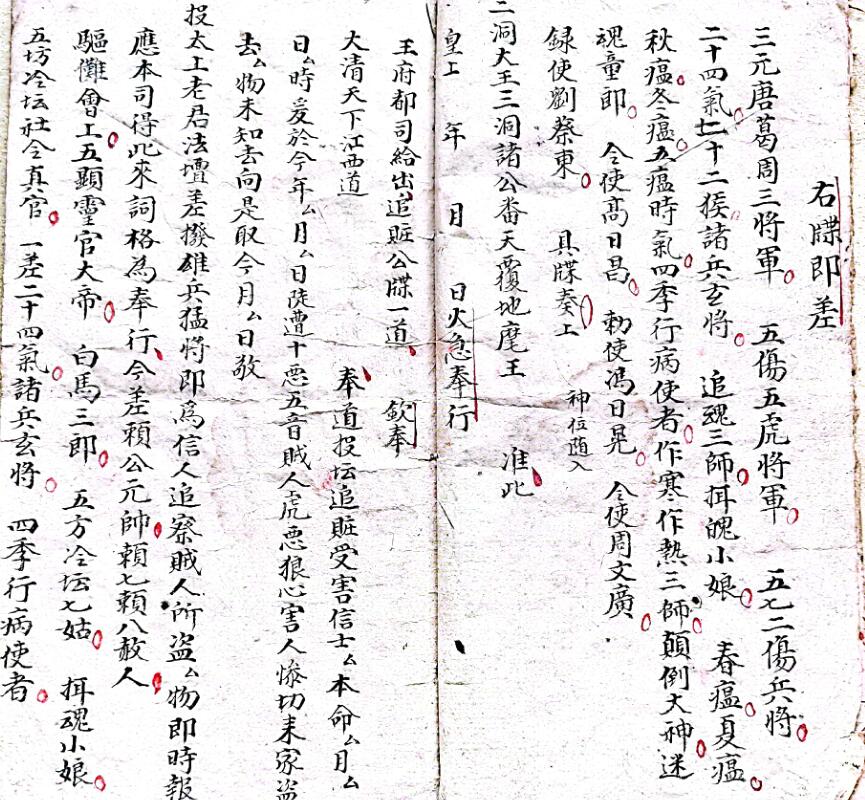 右牒即差
三元唐葛周三將軍 五傷五虎將軍 五七二傷兵將
二十四氣七十二猴諸兵玄將 追魂三師拜魄小娘 春瘟夏瘟
秋瘟冬瘟五瘟時氣四季行病使者作寒作熱三師顛倒大神迷
魂童郎 令使髙日昌 勅使馮日晃 令使周文廣
録使劉蔡東 具牒奏上 神位随入
二洞大王三洞諸公畨天覆地麾王 准此
皇上 年 月 日火急奉行
王府都司給出追賍公牒一道 欽奉
大清天下江西道 奉道投坛追賍受害信士厶本命厶月厶
日厶時爰於今年厶月厶日陡遭十悪五音賊人虎悪狼心害人慘切来家盗
去厶物未知去向是取今月厶日敬
投太上老君法壇差撥雄兵猛將即為信人追察賊人所盗厶物即時報
應本司得此來詞格為奉行今差賴公元帥賴七賴八赦人
驅儺會上五顯霊官大帝 白馬三郎 五方冷坛七姑 拜魂小娘
五坊冷坛社令真官 一差二十四氣諸兵玄將 四季行病使者